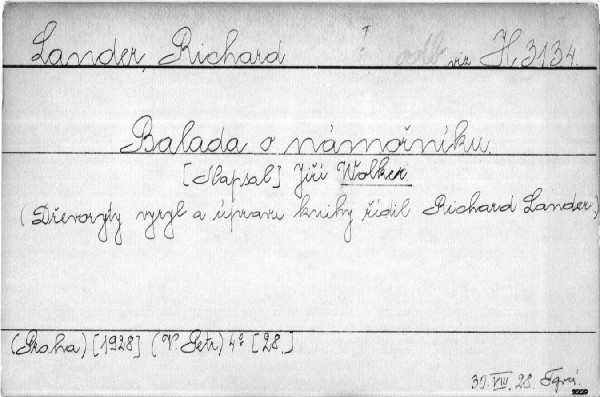 Lander, Richard viz H, 3134.
Balada o námořníku.
[Napsal] Jiří Wolker.
(Dřevoryty vyryl a úpravu knihy řídil Richard Lander.)
(Praha) [1928] (V. Petr) 4° [28.]
30. VIII. 28.